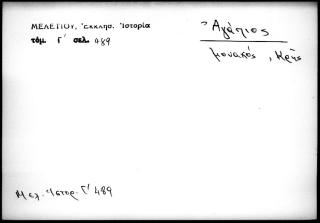 ΜΕΛΕΤΙΟΥ, Ἐκκλησ. Ἱστορία
τόμ. Γ' σελ. 489
Ἀγάπιος
μοναχός, Κρής
Μελ. Ἱστορ. Γ' 489